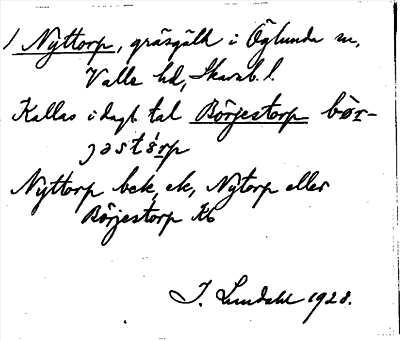 1 Nyttorp, gräsgäld i Öglunda sn,
Valle hd, Skarab. l.
Kallas i dagl. tal Börjestorp bör-
jastårp
Nyttorp bek, ek, Nytorp eller
Börjestorp Kb
I. Lundahl 1928.